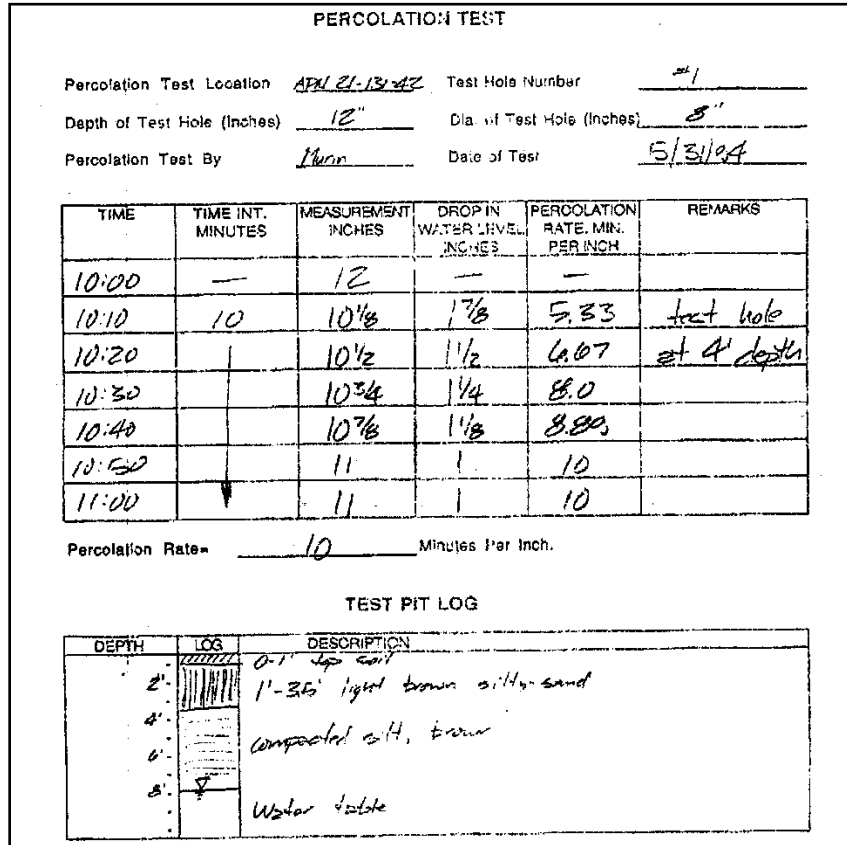 PERCOLATION TEST
Percolation Test Location APN 21-131-42 Test Hole Number #1
Depth of Test Hole (Inches) 12" Dia. of Test Hole (Inches) 8"
Percolation Test By Date of Test 5/31/94
TIME TIME INT. MINUTES MEASUREMENT INCHES DROP IN WATER LEVEL INCHES PERCOLATION RATE. MIN. PER INCH REMARKS
10:00 — 12 — —
10:10 10 10 1/8 1 7/8 5.33 test hole
10:20 10 1/2 1 1/2 6.67 at 4' depth
10:30 10 3/4 1 1/4 8.0
10:40 10 7/8 1 1/8 8.89
10:50 11 1 10
11:00 11 1 10
Percolation Rate= 10 Minutes Per Inch.
TEST PIT LOG
DEPTH LOG DESCRIPTION
0-1' top soil
2' 1'-3.5' light brown silty-sand
4'
6' compacted silt, brown
8'
Water table